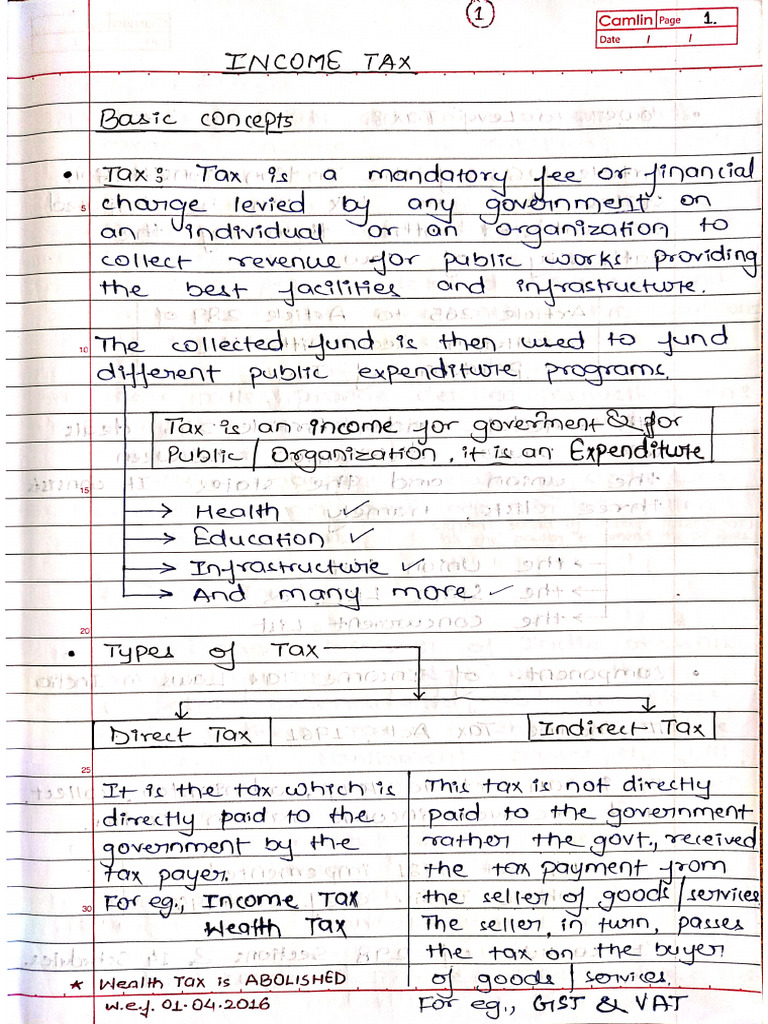 1
Camlin Page 1.
Date / /
INCOME TAX
Basic concepts
• Tax: Tax is a mandatory fee or financial
5 charge levied by any government on
an individual or an organization to
collect revenue for public works providing
the best facilities and infrastructure.
10 The collected fund is then used to fund
different public expenditure programs.
Tax is an income for goverment & for
Public / Organization, it is an Expenditure
15
→ Health ✓
→ Education ✓
→ Infrastructure ✓
→ And many more ✓
20
• Types of Tax
Direct Tax
Indirect Tax
25
It is the tax which is
directly paid to the
government by the
tax payer.
30 For eg., Income Tax
Wealth Tax
* Wealth Tax is ABOLISHED
w.e.f. 01.04.2016
This tax is not directly
paid to the government
rather the govt., received
the tax payment from
the seller of goods / services
The seller, in turn, passes
the tax on the buyer
of goods / services.
For eg., GST & VAT